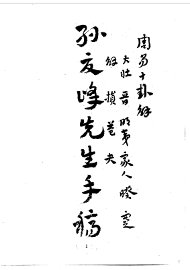 周易十卦解
大壮 晋 明夷 家人 睽 蹇
解 损 益 夬
孙友峰先生手稿